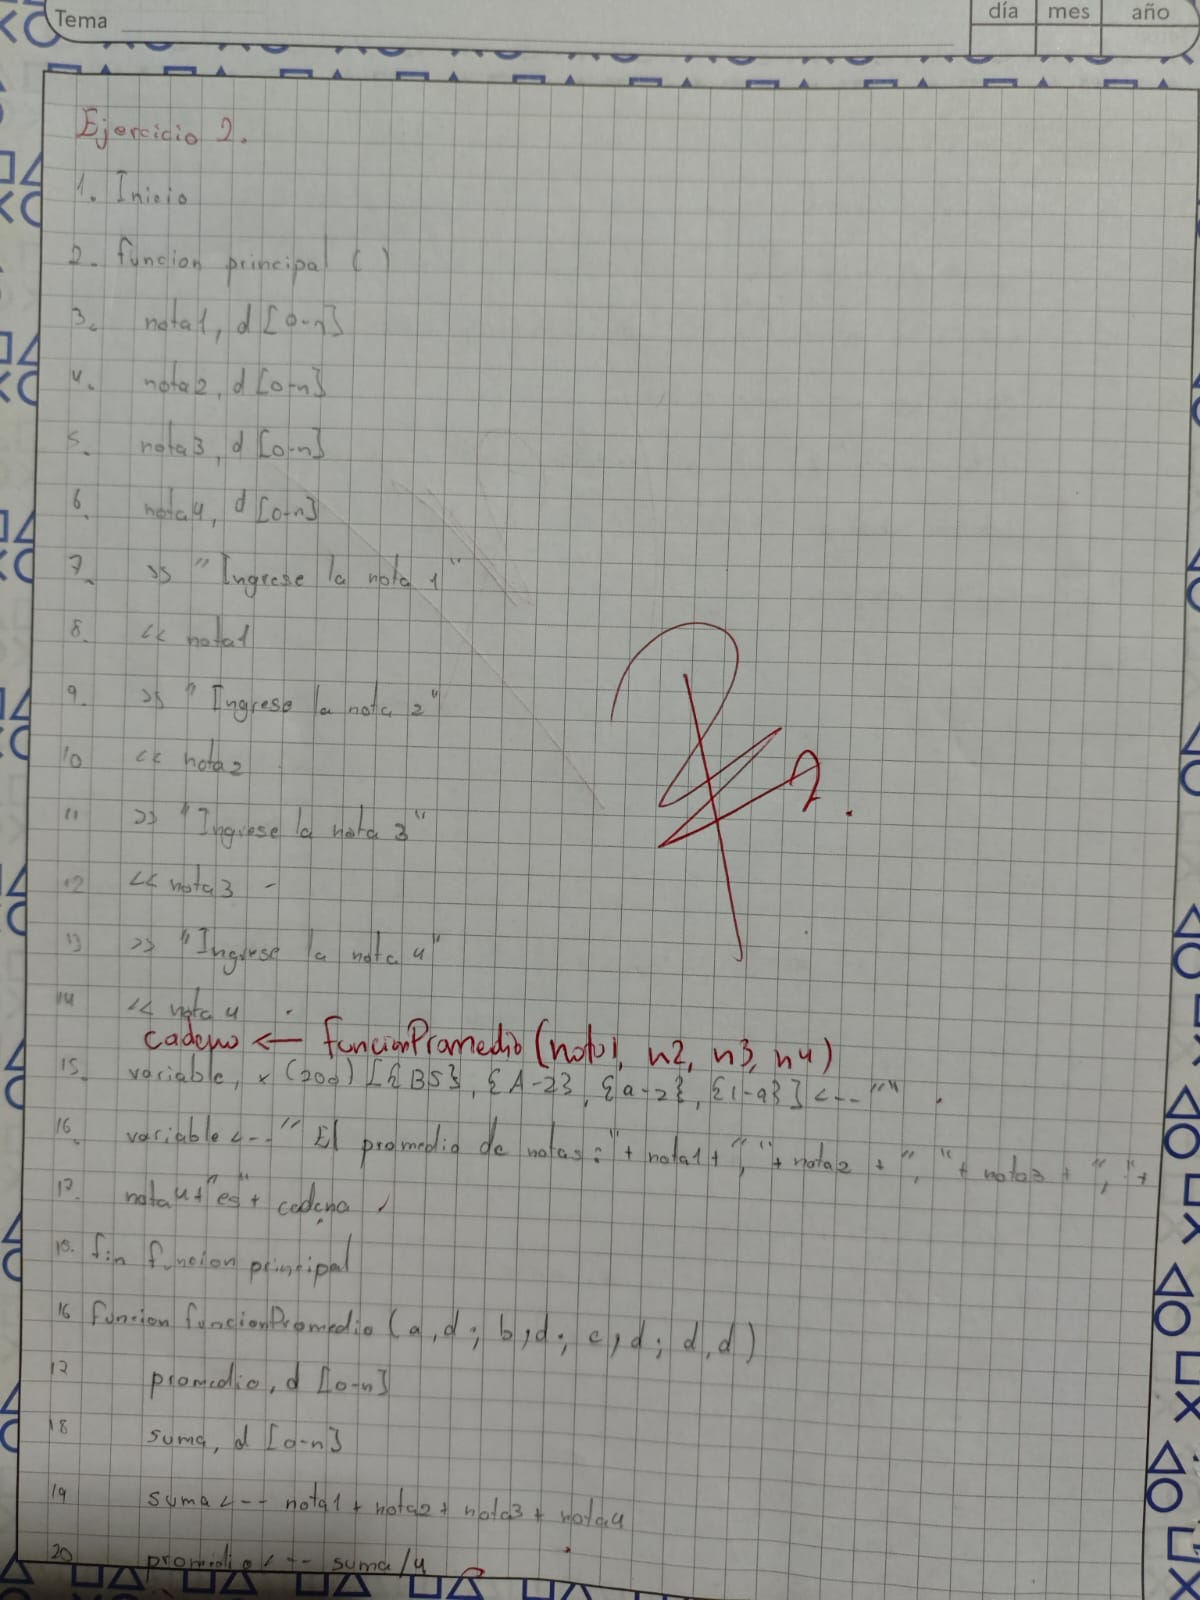 Tema
día mes año
Ejercicio 2.
1. Inicio
2. funcion principal ( )
3. nota1, d [0-n]
4. nota2, d [0-n]
5. nota3, d [0-n]
6. nota4, d [0-n]
7. >> "Ingrese la nota 1"
8. << nota1
9. >> "Ingrese la nota 2"
10 << nota2
11 >> "Ingrese la nota 3"
12 << nota3
13 >> "Ingrese la nota 4"
14 << nota 4
cadena <— funcionPromedio (nota1, n2, n3, n4)
15. variable, x (200) [{BS}, {A-Z}, {a-z}, {1-9}] <-- ""
16. variable <-- "El promedio de notas: "+ nota1 + ", "+ nota2 + ", "+ nota3 + ", "+
17. nota4 + "es" + cadena
18. fin funcion principal
16 funcion funcionPromedio (a,d; b,d; c,d; d,d)
17 promedio, d [0-n]
18 suma, d [0-n]
19 suma <-- nota1 + nota2 + nota3 + nota4
20 promedio <-- suma/4